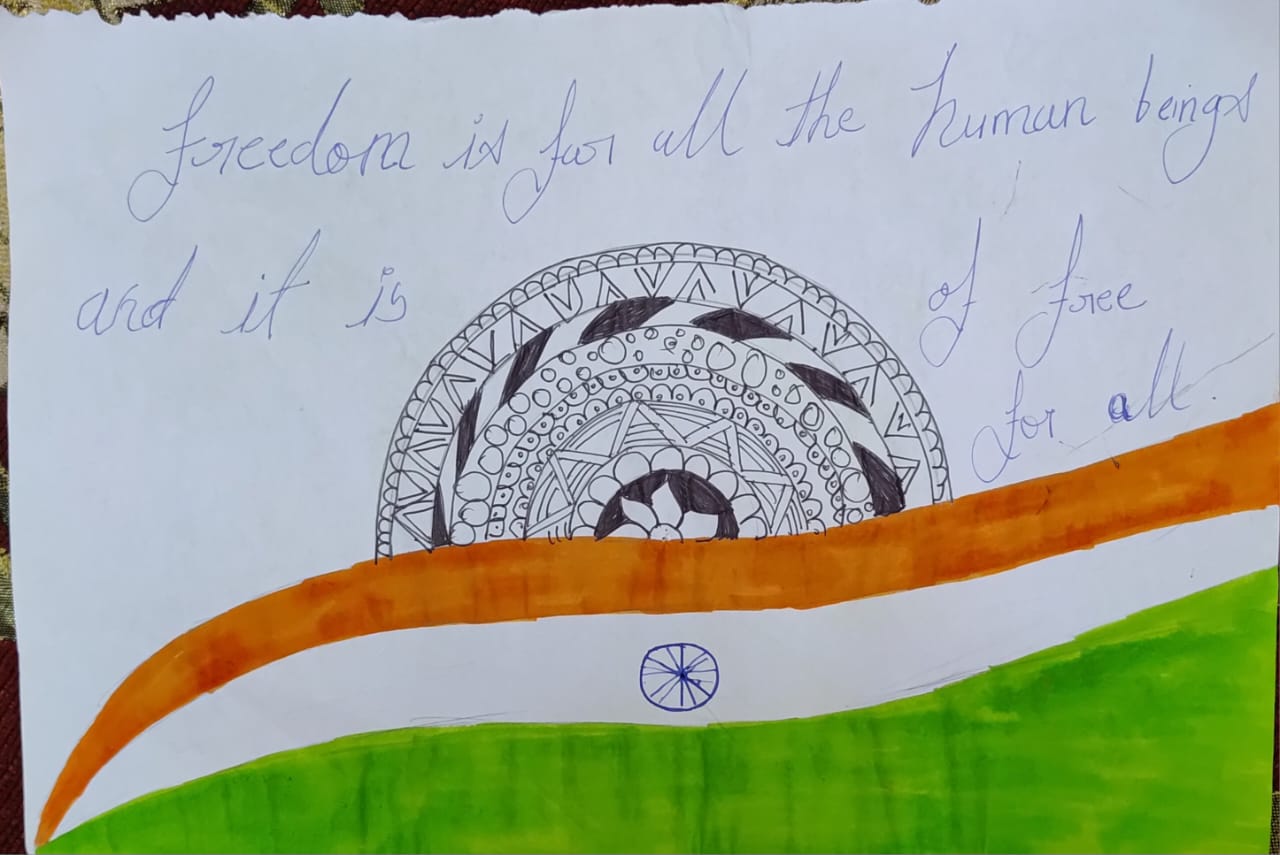 Freedom is for all the human beings
and it is of free
for all.